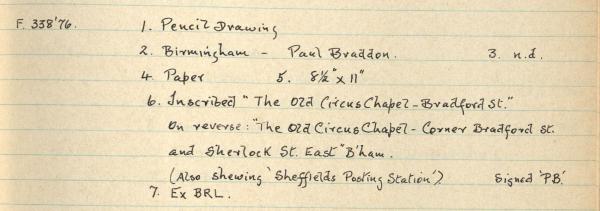 F. 338'76. 1. Pencil Drawing
2. Birmingham - Paul Braddon. 3. n.d.
4. Paper 5. 8½" x 11"
6. Inscribed "The Old Circus Chapel - Bradford St."
On reverse: "The Old Circus Chapel - Corner Bradford St.
and Sherlock St. East" B'ham.
(Also shewing 'Sheffields Posting Station'). Signed 'PB'.
7. Ex BRL.